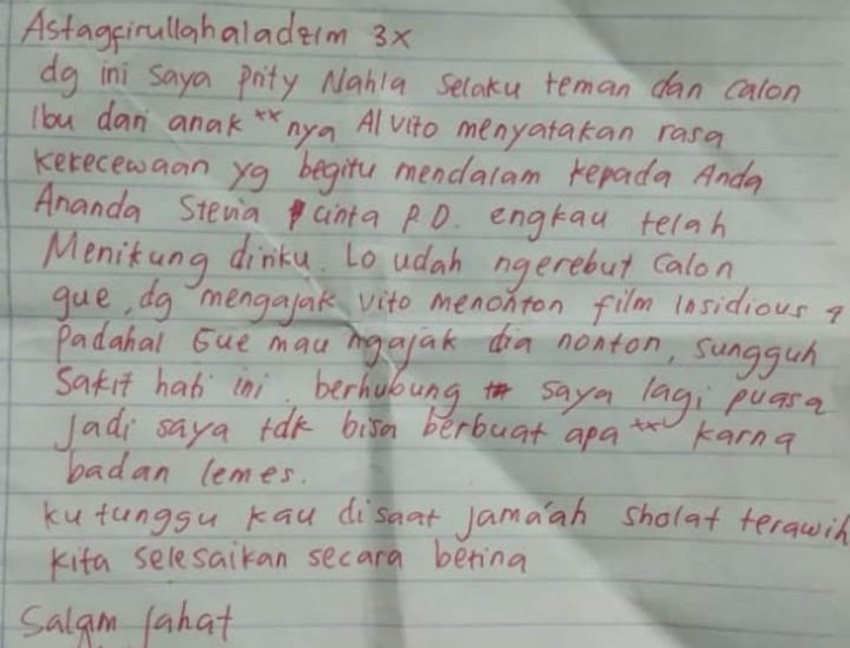 Astagfirullahaladzim 3x
dg ini saya Prity Nahla selaku teman dan calon
Ibu dari anak xx nya Al vito menyatakan rasa
kekecewaan yg begitu mendalam kepada Anda
Ananda Stevia cinta P.D. engkau telah
Menikung diriku. Lo udah ngerebut calon
gue, dg mengajak vito menonton film Insidious 4
Padahal Gue mau ngajak dia nonton, sungguh
Sakit hati ini. berhubung saya lagi puasa
Jadi saya tdk bisa berbuat apa xx karna
badan lemes.
ku tunggu kau disaat jama'ah sholat terawih
kita selesaikan secara betina
Salam Jahat